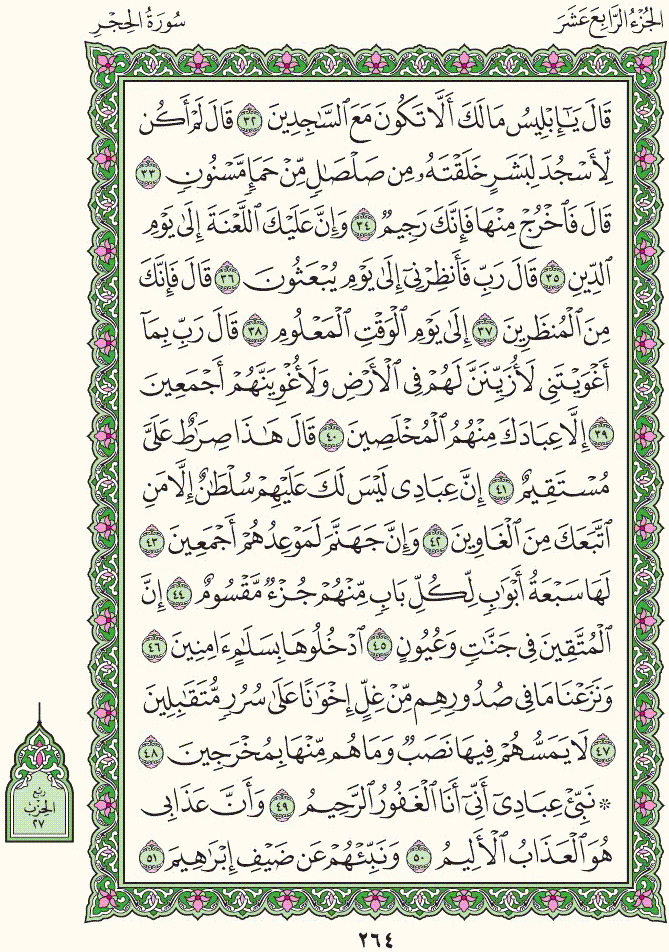 الجُزْءُ الرَّابِعَ عَشَرَ
سُورَةُ الحِجْرِ
قَالَ يَٰٓإِبۡلِيسُ مَا لَكَ أَلَّا تَكُونَ مَعَ ٱلسَّٰجِدِينَ ٣٢ قَالَ لَمۡ أَكُن
لِّأَسۡجُدَ لِبَشَرٍ خَلَقۡتَهُۥ مِن صَلۡصَٰلٖ مِّنۡ حَمَإٖ مَّسۡنُونٖ ٣٣
قَالَ فَٱخۡرُجۡ مِنۡهَا فَإِنَّكَ رَجِيمٞ ٣٤ وَإِنَّ عَلَيۡكَ ٱللَّعۡنَةَ إِلَىٰ يَوۡمِ
ٱلدِّينِ ٣٥ قَالَ رَبِّ فَأَنظِرۡنِيٓ إِلَىٰ يَوۡمِ يُبۡعَثُونَ ٣٦ قَالَ فَإِنَّكَ
مِنَ ٱلۡمُنظَرِينَ ٣٧ إِلَىٰ يَوۡمِ ٱلۡوَقۡتِ ٱلۡمَعۡلُومِ ٣٨ قَالَ رَبِّ بِمَآ
أَغۡوَيۡتَنِي لَأُزَيِّنَنَّ لَهُمۡ فِي ٱلۡأَرۡضِ وَلَأُغۡوِيَنَّهُمۡ أَجۡمَعِينَ
٣٩ إِلَّا عِبَادَكَ مِنۡهُمُ ٱلۡمُخۡلَصِينَ ٤٠ قَالَ هَٰذَا صِرَٰطٌ عَلَيَّ
مُسۡتَقِيمٌ ٤١ إِنَّ عِبَادِي لَيۡسَ لَكَ عَلَيۡهِمۡ سُلۡطَٰنٌ إِلَّا مَنِ
ٱتَّبَعَكَ مِنَ ٱلۡغَاوِينَ ٤٢ وَإِنَّ جَهَنَّمَ لَمَوۡعِدُهُمۡ أَجۡمَعِينَ ٤٣
لَهَا سَبۡعَةُ أَبۡوَٰبٖ لِّكُلِّ بَابٖ مِّنۡهُمۡ جُزۡءٞ مَّقۡسُومٌ ٤٤ إِنَّ
ٱلۡمُتَّقِينَ فِي جَنَّٰتٖ وَعُيُونٍ ٤٥ ٱدۡخُلُوهَا بِسَلَٰمٍ ءَامِنِينَ ٤٦
وَنَزَعۡنَا مَا فِي صُدُورِهِم مِّنۡ غِلٍّ إِخۡوَٰنًا عَلَىٰ سُرُرٖ مُّتَقَٰبِلِينَ
٤٧ لَا يَمَسُّهُمۡ فِيهَا نَصَبٞ وَمَا هُم مِّنۡهَا بِمُخۡرَجِينَ ٤٨
۞ نَبِّئۡ عِبَادِيٓ أَنِّيٓ أَنَا ٱلۡغَفُورُ ٱلرَّحِيمُ ٤٩ وَأَنَّ عَذَابِي
هُوَ ٱلۡعَذَابُ ٱلۡأَلِيمُ ٥٠ وَنَبِّئۡهُمۡ عَن ضَيۡفِ إِبۡرَٰهِيمَ ٥١
ربع
الحِزْب
٢٧
٢٦٤